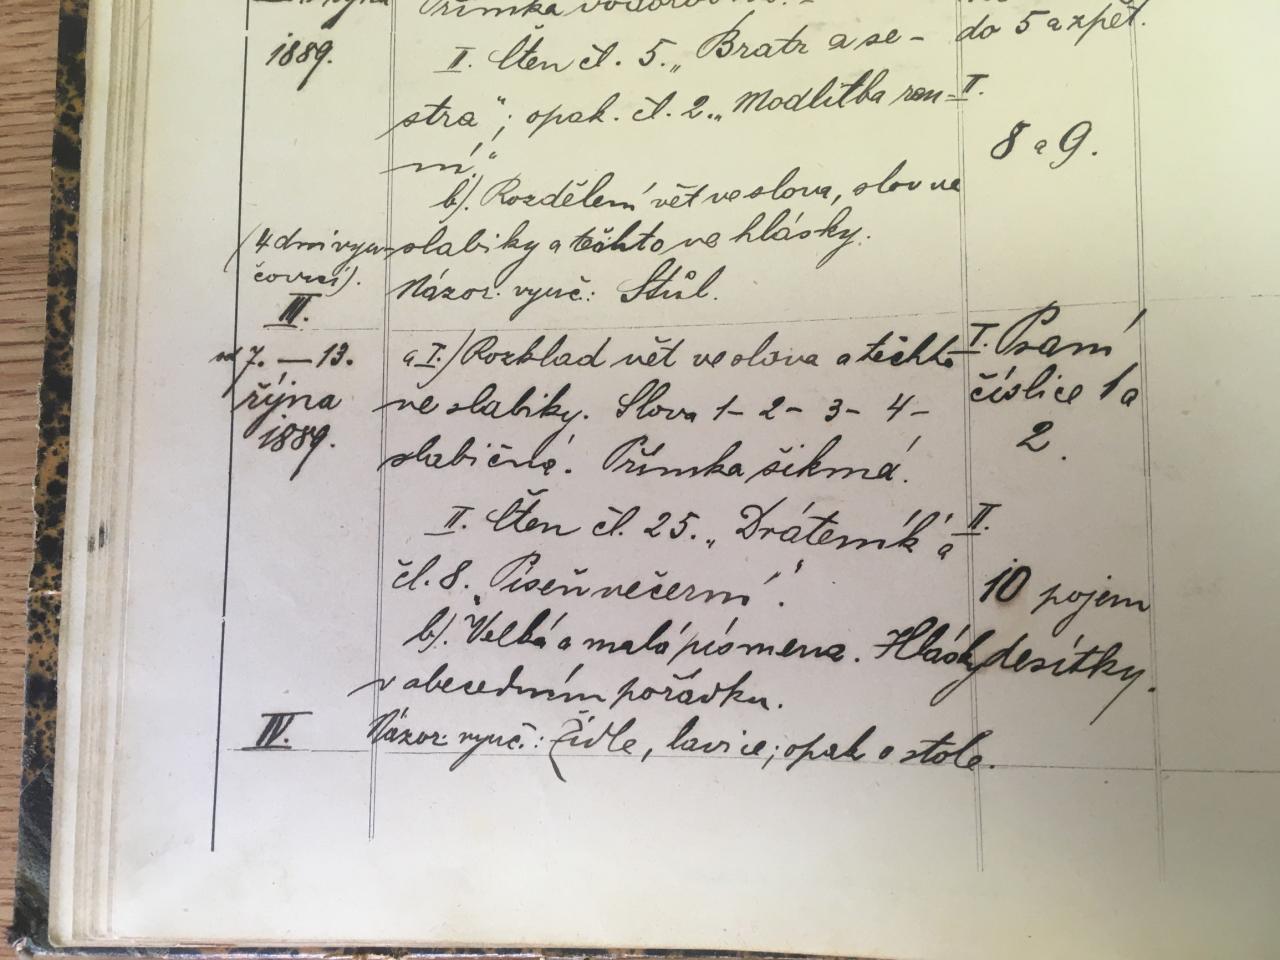 října
Přímka vodorovná. –
1889.
II. Čten čl. 5. „Bratr a se-
do 5 a zpět.
stra“; opak. čl. 2. „Modlitba ran-
II.
ní.“
8 a 9.
b). Rozdělení vět ve slova, slov ve
(4 dni vyu-
slabiky a těchto ve hlásky.
čovací).
Názor. vyuč.: Stůl.
III.
od 7. — 13.
a I.) Rozklad vět ve slova a těchto
I. Psaní
října
ve slabiky. Slova 1- 2- 3- 4-
číslice 1 a
1889.
slabičná. Přímka šikmá.
2.
II. Čten čl. 25. „Dráteník“ a
II.
čl. 8. „Píseň večerní“.
10 pojem
b). Velká a malá písmena. Hlásky
desítky.
v abecedním pořádku.
IV.
Názor. vyuč.: Židle, lavice; opak. o stole.